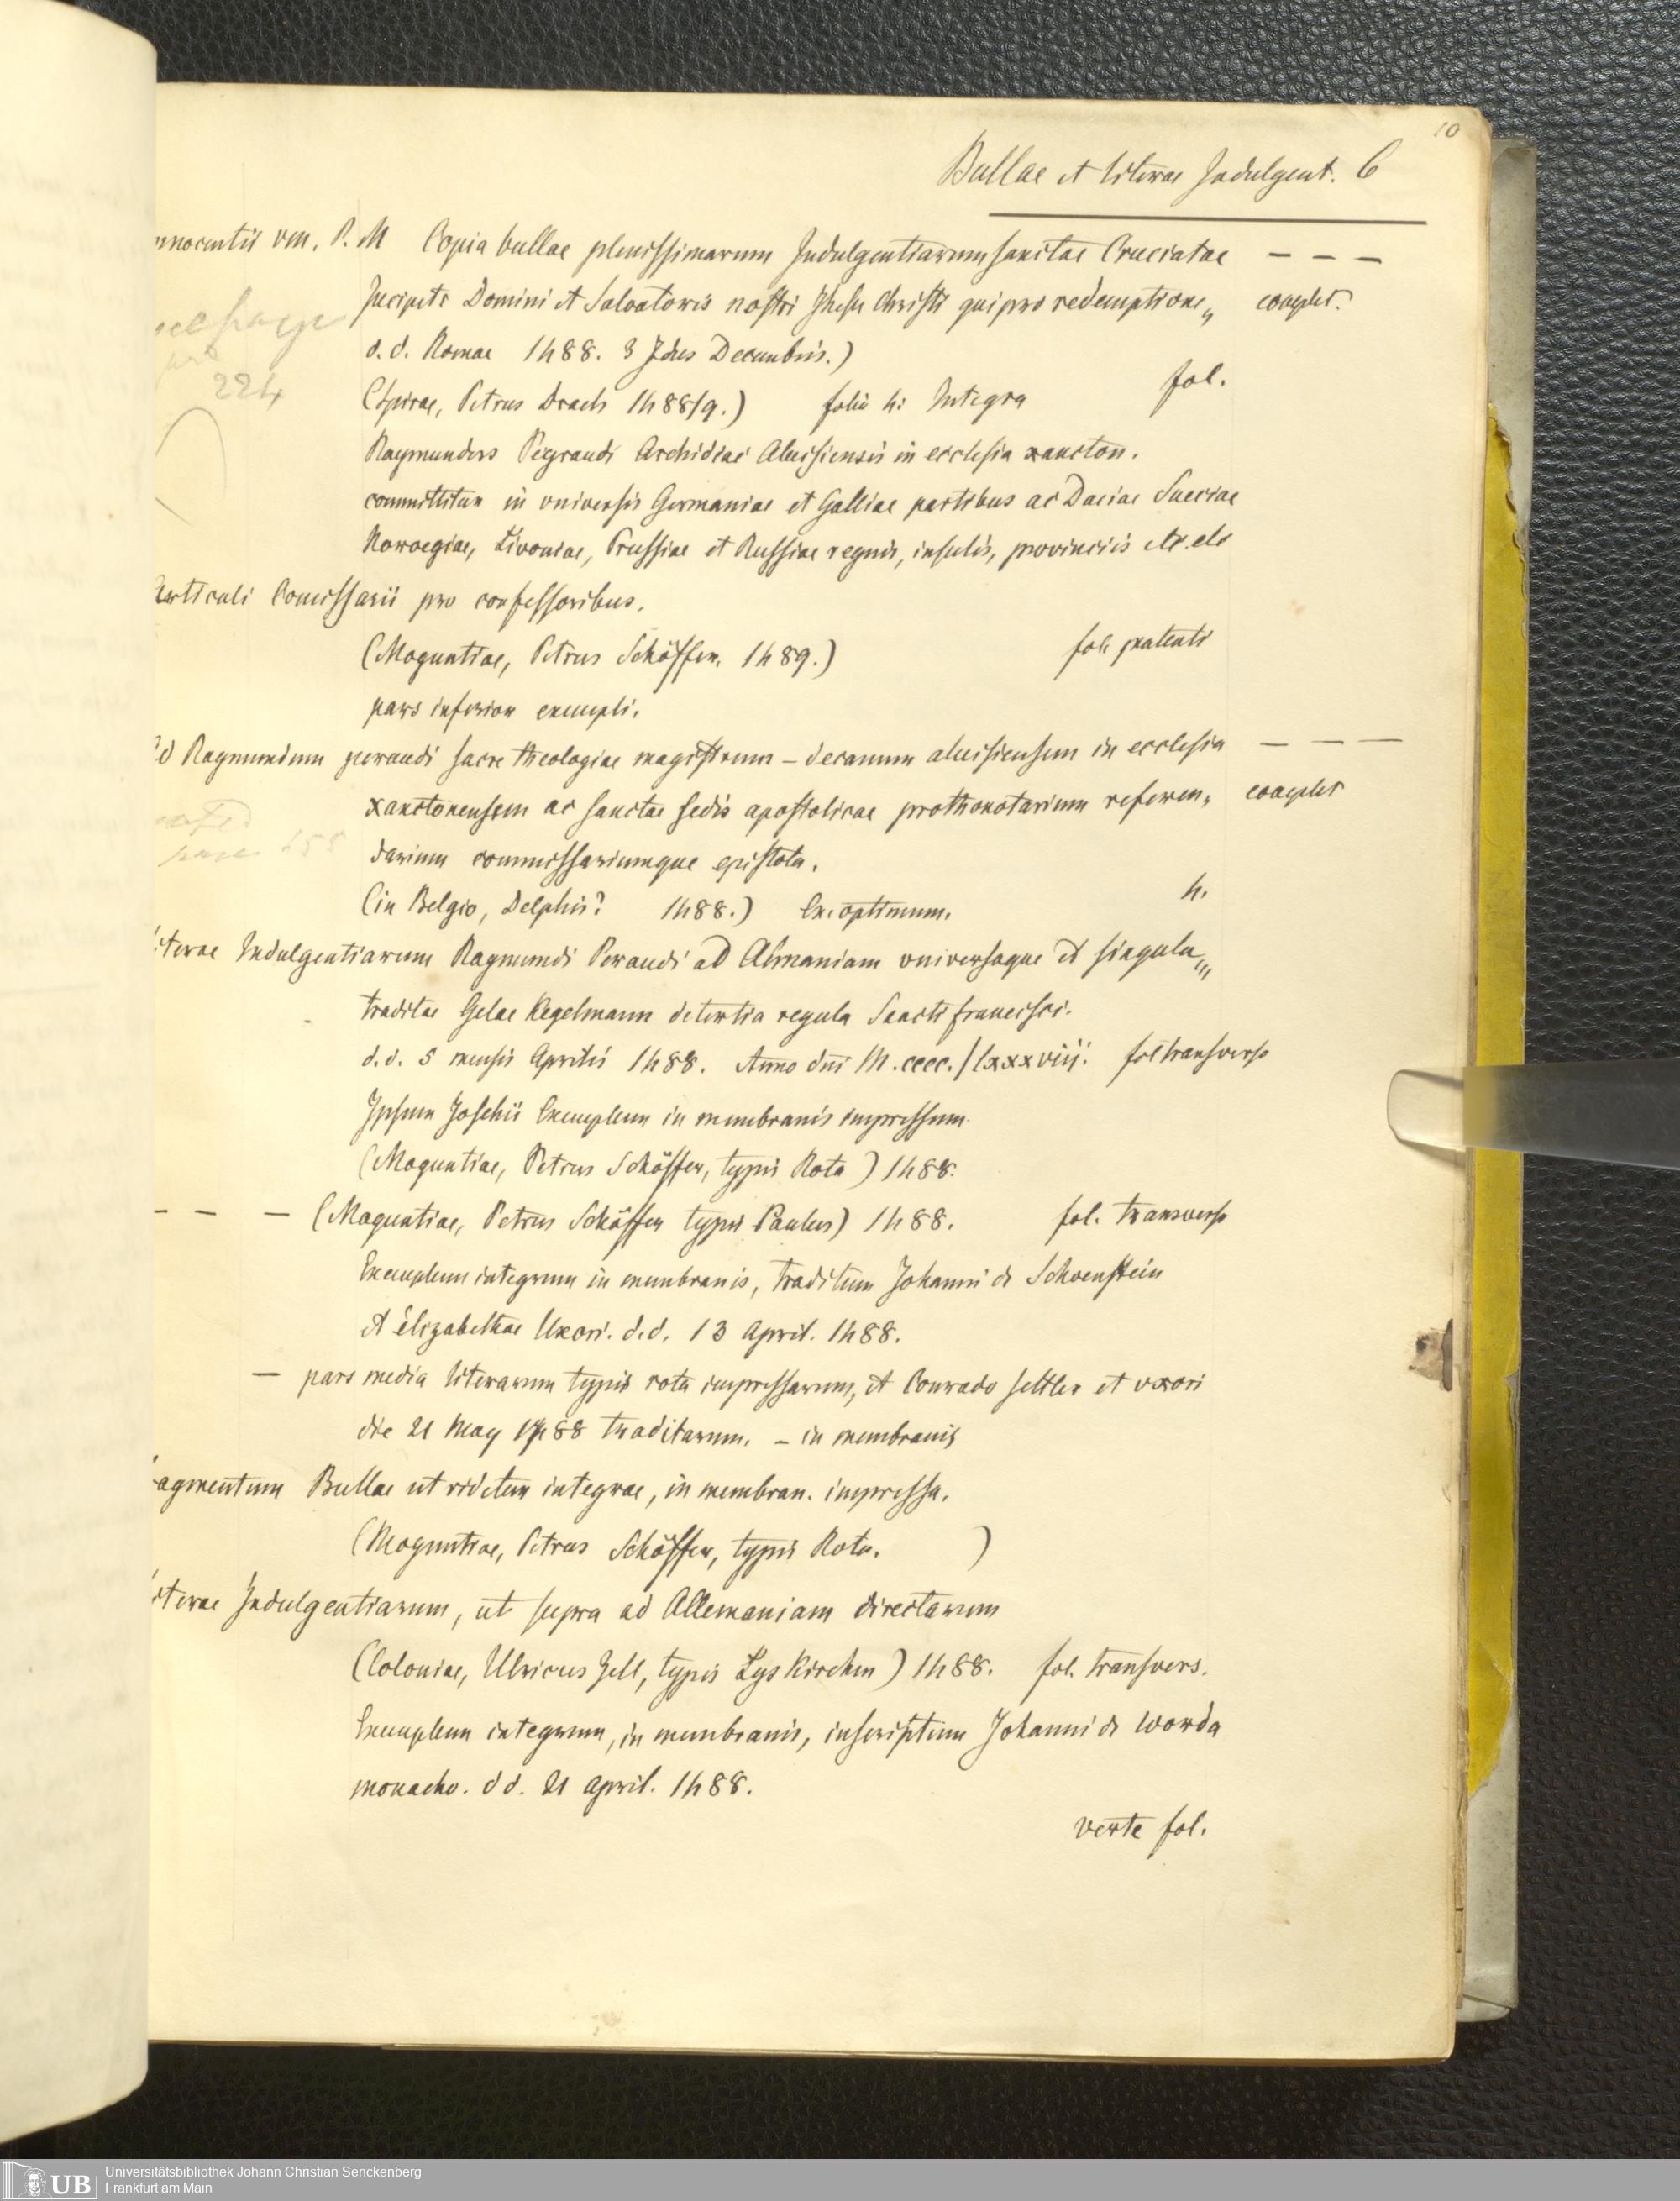 10
Bullae et literae Indulgent. 6
nnocentii VIII. P. M Copia bullae plenissimarum Indulgentiarum sanctae Cruciatae — — —
Incipit: Domini et Salvatoris nostri Jhesu Christi qui pro redemptione„ complet.
d. d. Romae 1488. 3 Idus Decembris.)
224
(Spirae, Petrus Drach 1488/9.) folia 4: Integra fol.
Raymundus Peyraudi Archidiac Aluisiensis in ecclesia xancton.
committitur in universis Germaniae et Galliae partibus ac Daciae Sueciae
Norvegiae, Livoniae, Prussiae et Russiae regnis, insulis, provinciis etc. etc
Articuli Comissarii pro confessoribus.
(Moguntiae, Petrus Schöffer, 1489.) fol. patenti
pars inferior exempli.
d Raymundum peraudi sacre theologiae magistrum – decanum aluisiensem in ecclesia — — —
xanctonensem ac sanctae sedis apostolicae prothonotarium referen„ complet
darium commissariumque epistola.
(in Belgio, Delphis? 1488.) Ex. optimum. 4.
iterae Indulgentiarum Raymundi Peraudi ad Almaniam universaque et singula„
traditae Gelae Kegelmann de tertia regula Sancti francisci.
d. d. 5 mensis Aprilis 1488. Anno dni M.cccc./lxxxviij. fol transverso
Ipsum Joschii Exemplum in membranis impressum
(Moguntiae, Petrus Schöffer, typis Rota) 1488.
— — — (Moguntiae, Petrus Schöffer typis Paulus) 1488. fol. transverso
Exemplum integrum in membranis, traditum Johanni de Schoenstein
et Elizabethae Uxori. d.d. 13 April. 1488.
— pars media literarum typis rota impressarum, et Conrado settler et uxori
die 21 May 1488 traditarum. – in membranis
ragmentum Bullae ut videtur integrae, in membran. impressa.
(Moguntiae, Petrus Schöffer, typis Rota. )
iterae Indulgentiarum, ut supra ad Allemaniam directarum
(Coloniae, Ulricus Zell, typis Lyskirchen) 1488. fol. transvers.
Exemplum integrum, in membranis, inscriptum Johanni de Worda
monacho. d d. 21 April. 1488.
verte fol.
UB
Universitätsbibliothek Johann Christian Senckenberg
Frankfurt am Main